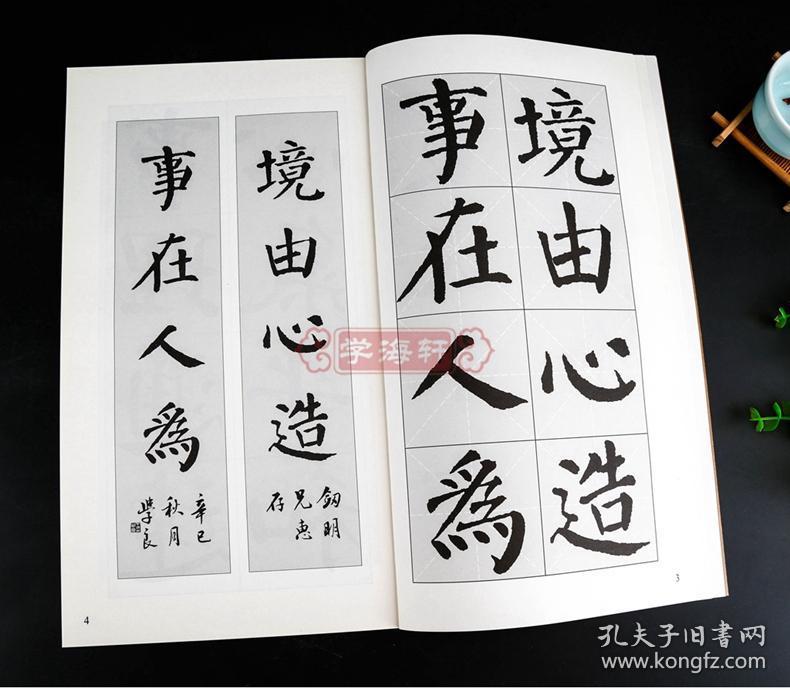 境由心造
事在人為
釰明
兄惠
存
境由心造
事在人為
辛巳
秋月
學良
3
4
学海轩
孔夫子旧书网
www.kongfz.com